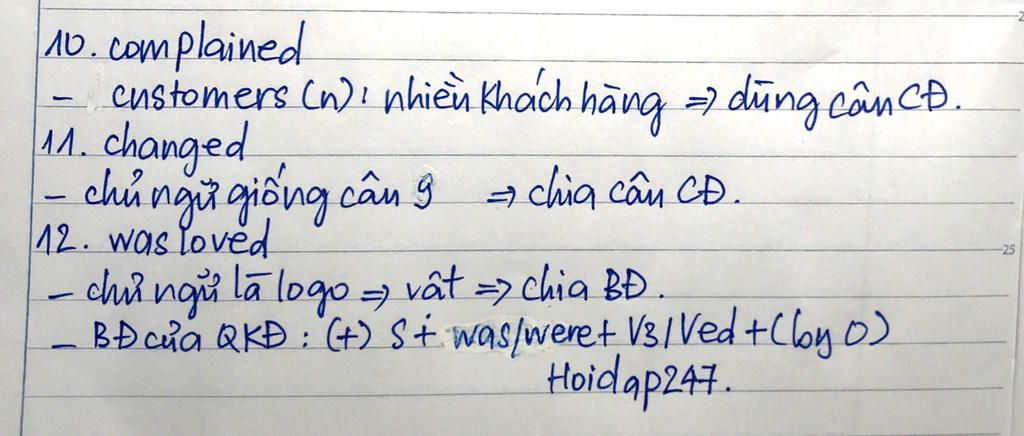 10. complained
- customers (n): nhiều khách hàng => dùng câu CĐ.
11. changed
- chủ ngữ giống câu 9 => chia câu CĐ.
12. was loved
- chủ ngữ là logo => vật => chia BĐ.
25
- BĐ của QKĐ: (+) S + was/were + V3/Ved + (by O)
Hoidap247.